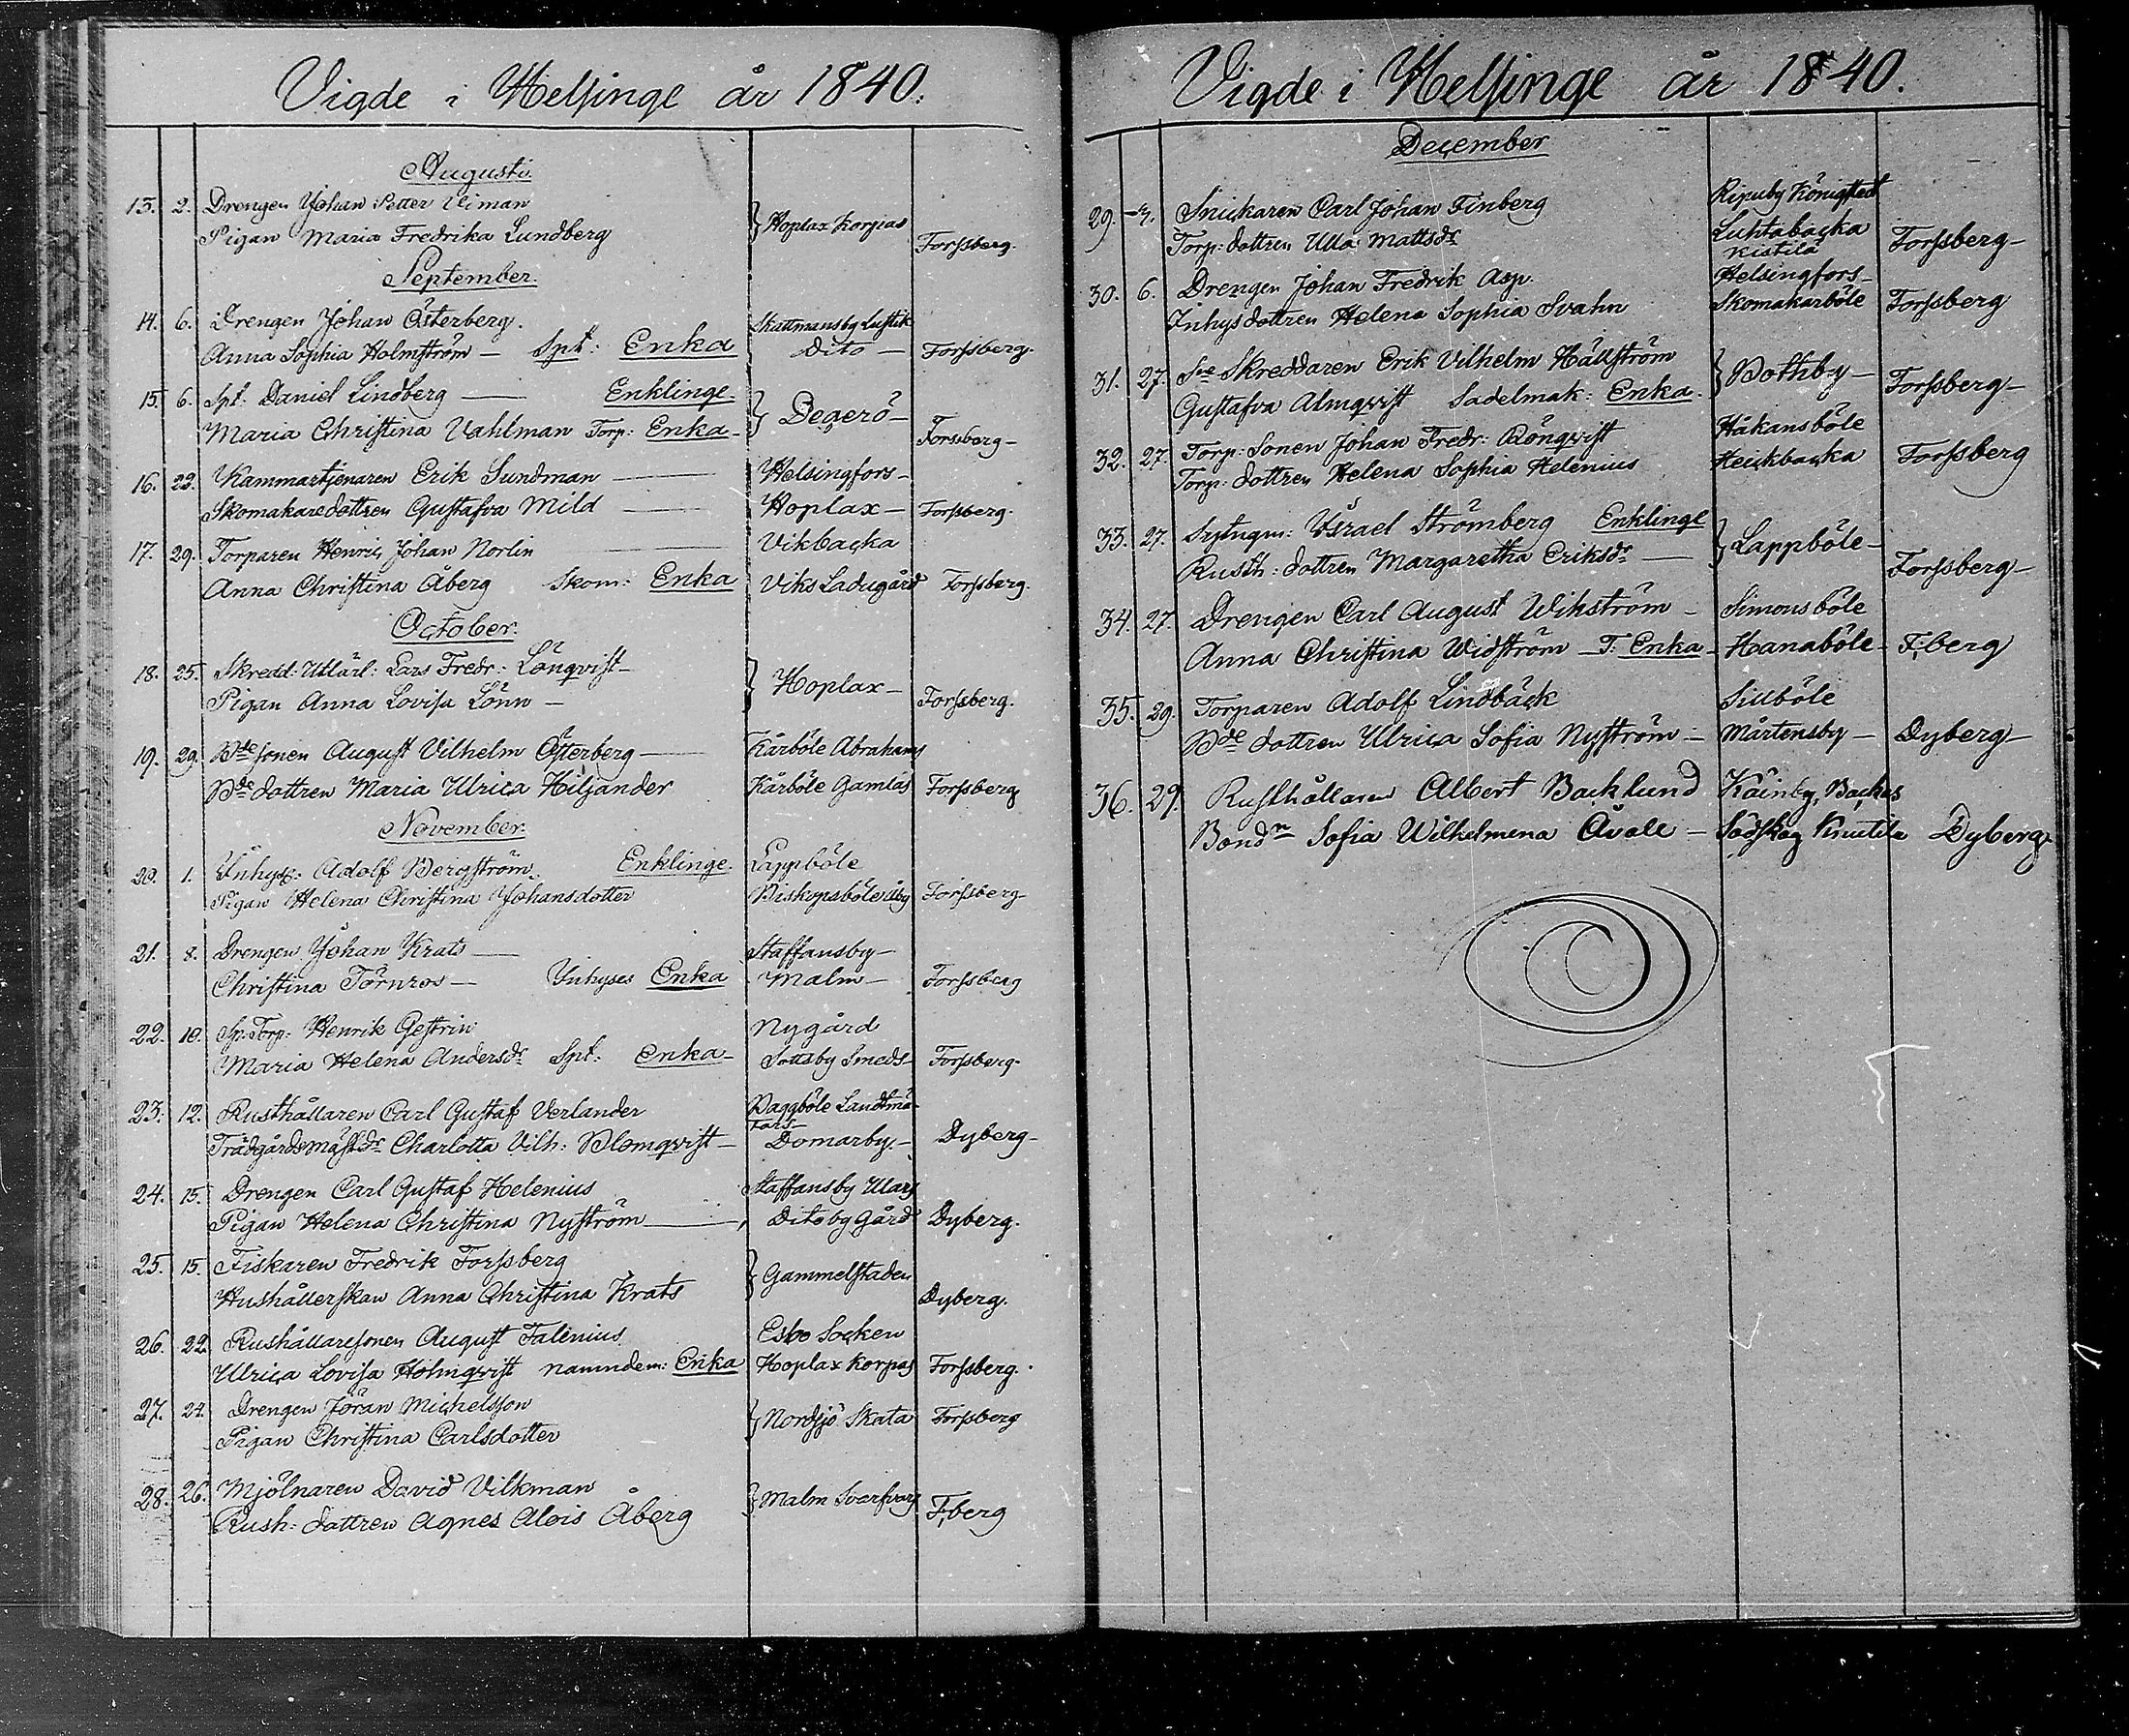 Vigde i Helsinge år 1840.
Augusti.
13. 2. Drengen Johan Petter Viman
Pigan Maria Fredrika Lundberg } Hoplax Korpas Forssberg.
September.
14. 6. Drengen Johan Österberg. Skattmansby Lustik
Anna Sophia Holmström — Spt: Enka Dito — Forssberg.
15. 6. Spt. Daniel Lindberg — Enklinge.
Maria Christina Vahlman Torp: Enka — } Degerö — Forssberg —
16. 22. Kammartjenaren Erik Sundman — Helsingfors —
Skomakaredottren Gustafva Mild — Hoplax — Forssberg.
17. 29. Torparen Henric Johan Norlin — Vikbacka
Anna Christina Åberg Skom: Enka Viks Ladugård Forssberg.
October.
18. 25. Skredd: Utlärl: Lars Fredr: Lönqvist —
Pigan Anna Lovisa Lönn — } Hoplax — Forssberg.
19. 29. Bde sonen August Vilhelm Österberg — Kårböle Abrahams
Bde dottren Maria Ulrica Hiljander Kårböle Gamlas Forssberg
November.
20. 1. Inhys: Adolf Bergström. Enklinge. Lappböle
Pigan Helena Christina Johansdotter Biskopsböle Åby Forssberg
21. 8. Drengen Johan Krats — Staffansby —
Christina Törnros — Inhyses Enka Malm — Forssberg
22. 10. Sp. Torp: Henrik Gestrin Nygård
Maria Helena Andersdr Spt: Enka — Sottsby Smeds — Forssberg.
23. 12. Rusthållaren Carl Gustaf Verlander Baggböle Landtmä-
tars
Trädgårdsmästdr Charlotta Vilh: Blomqvist — Domarby — Dyberg —
24. 15. Drengen Carl Gustaf Helenius Staffansby Ulars
Pigan Helena Christina Nyström — Ditoby Gård Dyberg.
25. 15. Fiskaren Fredrik Forssberg
Hushållerskan Anna Christina Krats } Gammelstaden Dyberg.
26. 22. Rushållaresonen August Falenius Esbo Socken
Ulrica Lovisa Holmqvist namndem: Enka Hoplax Korpas Forssberg.
27. 24. Drengen Jöran Michelsson
Pigan Christina Carlsdotter } Nordsjö Skata Forssberg
28. 26. Mjölnaren David Vilkman
Rush: dottren Agnes Alois Åberg } Malm Svarfvars F;berg
Vigde i Helsinge år 1840.
December
29. Snickaren Carl Johan Finberg Ripuby Königstedt
Torp: dottren Ulla Mattsdr Luhtabacka
Kistila Forssberg —
30. 6. Drengen Johan Fredrik Asp. Helsingfors —
Inhysdottren Helena Sophia Svahn Skomakarböle Forssberg
31. 27. Skreddaren Erik Vilhelm Hällström
Gustafva Almqvist Sadelmak: Enka. } Bothby — Forssberg —
32. 27. Torp: Sonen Johan Fredr: Rönqvist Håkansböle
Torp: dottren Helena Sophia Helenius Heickbacka Forssberg
33. 27. Sytngm: Israel Strömberg Enklinge
Rusth: dottren Margaretha Eriksdr — } Lappböle — Forssberg —
34. 27. Drengen Carl August Wikström — Simonsböle
Anna Christina Widström — T. Enka — Hanaböle — F;berg
35. 29. Torparen Adolf Lindbäck Sillböle
Bde dottren Ulrica Sofia Nyström — Mårtensby — Dyberg —
36. 29. Rusthållaren Albert Backlund Käinby, Backas
Bondn Sofia Wilhelmena Avale — Sodskog Knutila Dyberg.